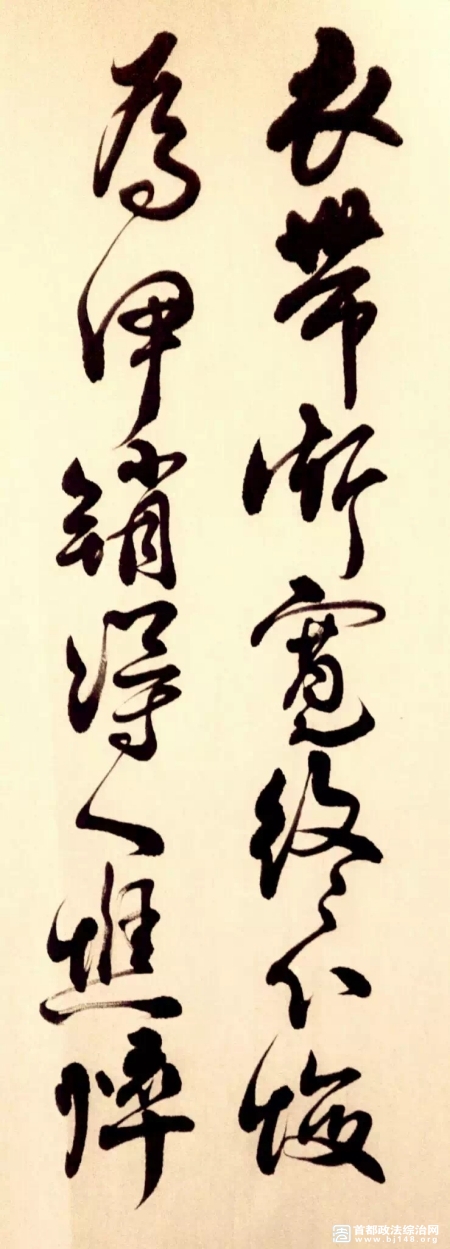 衣帶漸寬終不悔
為伊銷得人憔悴
首都政法综治网
www.bj148.org